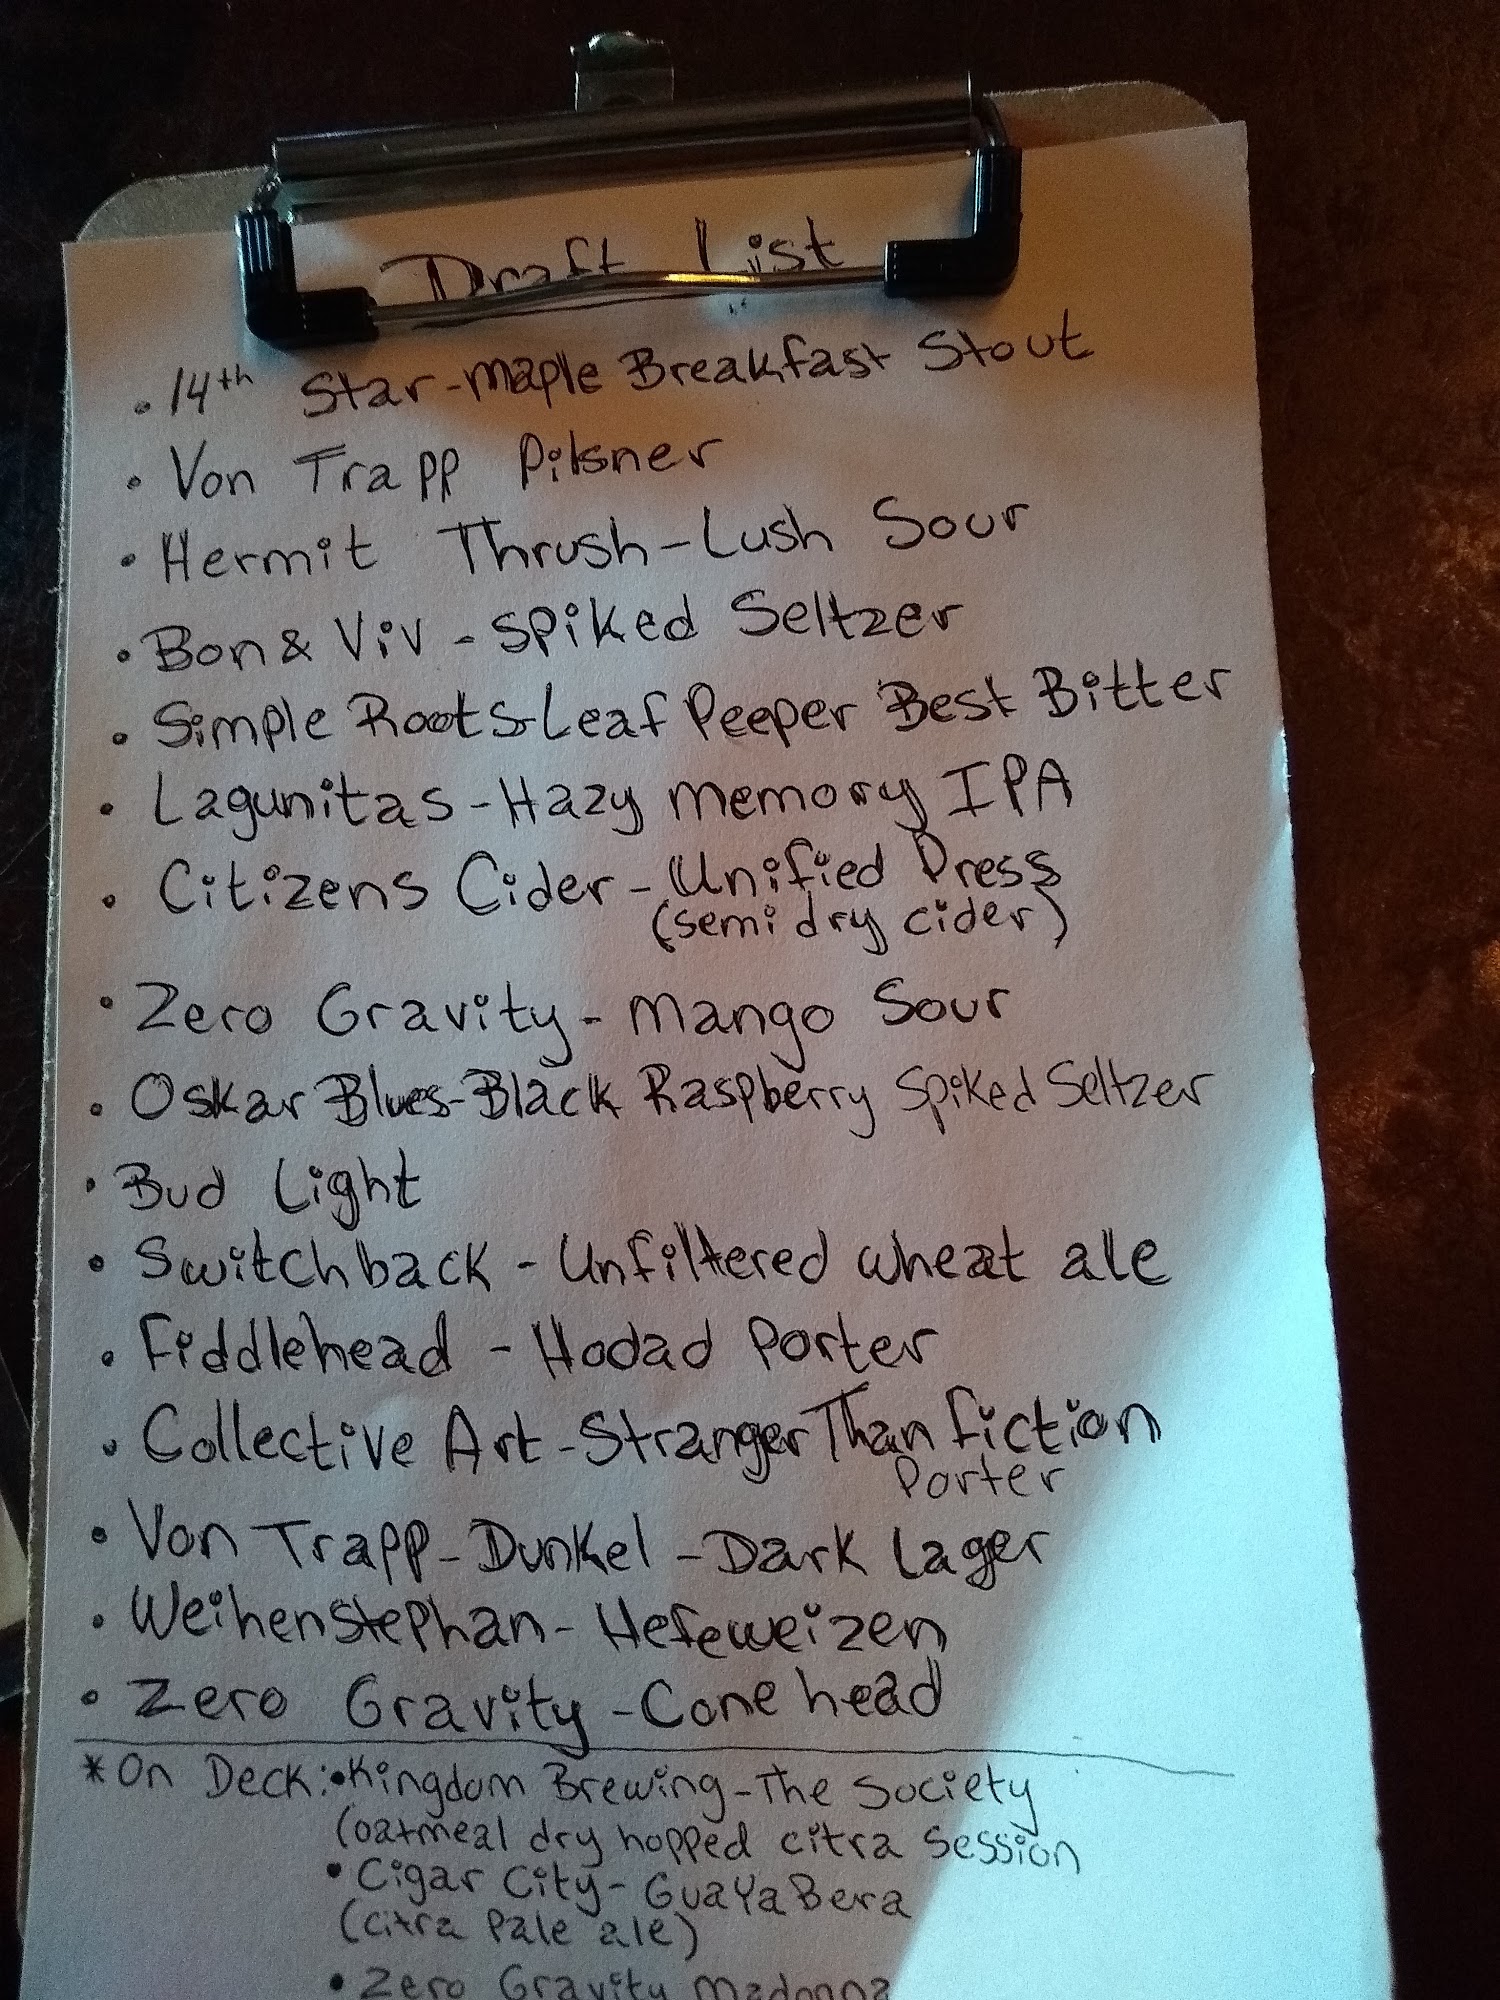 Draft List
• 14th Star-Maple Breakfast Stout
• Von Trapp Pilsner
• Hermit Thrush-Lush Sour
• Bon & Viv - Spiked Seltzer
• Simple Roots-Leaf Peeper Best Bitter
• Lagunitas-Hazy Memory IPA
• Citizens Cider-Unified Press
(semi dry cider)
• Zero Gravity-Mango Sour
• Oskar Blues-Black Raspberry Spiked Seltzer
• Bud Light
• Switchback - Unfiltered wheat ale
• Fiddlehead - Hodad Porter
• Collective Art-Stranger Than Fiction
Porter
• Von Trapp-Dunkel-Dark Lager
• Weihenstephan-Hefeweizen
• Zero Gravity-Conehead
* On Deck: • Kingdom Brewing-The Society
(oatmeal dry hopped citra session
• Cigar City-GuaYaBera
(citra Pale ale)
• Zero Gravity Madonna